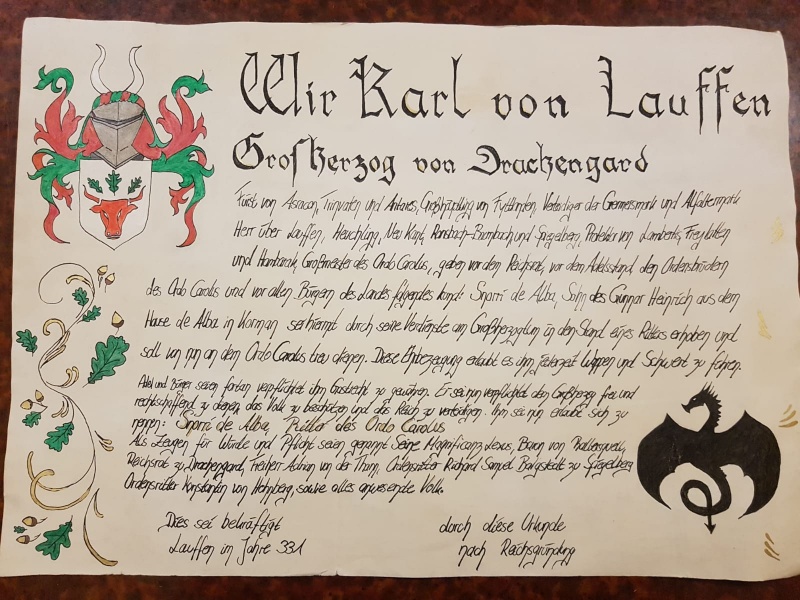 Wir Karl von Lauffen
Großherzog von Drachengard
Fürst von Asracan, Trinvaten und Antares, Großhäuptling von Fyttlanden, Verteidiger der Grenmersmark und Alfaltermark
Herr über Lauffen, Heuchling, Neu Kard, Ronsbach-Brombach und Spiegelberg, Protektor von
und Großmeister des Ordo Carolus, geben vor dem Reichsrat, vor dem Adelsstand, den Ordensbrüdern
des Ordo Carolus und vor allen Bürgern des Landes folgendes kund: Snorri de Alba, Sohn des Gunnar Heinrich aus dem
Hause de Alba in Korman sei hiermit durch seine Verdienste am Großherzogtum in den Stand eines Ritters erhoben und
soll von nun an dem Ordo Carolus treu dienen. Diese Ehrbezeugung erlaubt es ihm jederzeit Wappen und Schwert zu führen.
Adel und Bürger seien fortan verpflichtet ihm Gastrecht zu gewähren. Er sei nun verpflichtet dem Großherzog treu und
rechtschaffend zu dienen, das Volk zu beschützen und das Reich zu verteidigen. Ihm sei nun erlaubt sich zu
nennen: Snorri de Alba, Ritter des Ordo Carolus
Als Zeugen für Würde und Pflicht seien genannt Seine Magnifizenz Lexus, Baron von
Reichsrat zu Drachengard, Freiherr Adrian von der Thann, Ordensritter Richard Samuel Bargstedt zu Spiegelberg
Ordensritter Konstantin von Hohnberg, sowie alles anwesende Volk.
Dies sei bekräftigt
durch diese Urkunde
Lauffen im Jahre 331
nach Reichsgründung